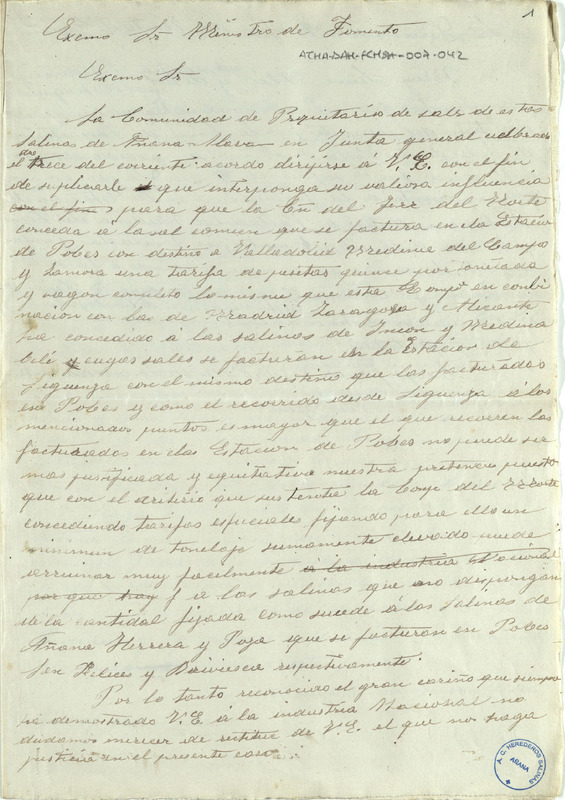 1
Excmo Sr Ministro de Fomento
ATHA-DAH-FCHSA-007-042
Excmo Sr
La Comunidad de Propietarios de sals de estas
Salinas de Añana-Alava- en Junta general celebrada
el trece del corriente acordo dirijirse á V. E. con el fin
de suplicarle que interponga su valiosa influencia
con el fin para que la Cn del Ferr del Norte
conceda á la sal comun que se factura en la Estacion
de Pobes con destino a Valladolid Medina del Campo
y Zamora una tarifa de pesetas quince por tonelada
y vagon completo lo mismo que esta Compª en combi
nacion con las de Madrid Zaragoza y Alicante
ha concedido á las salinas de Imon y Medina
celi y cuyas sales se facturan en la Estacion de
Siguenza con el mismo destino que las facturadas
en Pobes y como el recorrido desde Siguenza á los
mencionados puntos es mayor que el que recorren las
facturadas en las Estacion de Pobes no puede ser
mas justificada y equitativa nuestra pretencion puesto
que con el criterio que sustenta la Comp del Norte
concediendo tarifas especiales fijando para ello un
minimun de tonelaje sumamente elevado puede
arruinar muy facilmente a la industria Nacional
por que hay á las salinas que no dispongan
de la cantidad fijada como sucede á las Salinas de
Añana Herrera y Poza que se facturan en Pobes
San Felices y Briviesca respectivamente.
Por lo tanto reconocido el gran cariño que siempre
ha demostrado V. E á la industria Nacional no
dudamos merecer de V. E. el que nos haga
justicia en el presente caso
A. C. HEREDEROS SALINAS
AÑANA